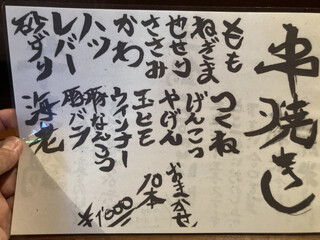 串焼き
もも
ねぎま
せせり
ささみ
かわ
ハツ
レバー
砂ずり
つくね
げんこつ
やげん
玉ヒモ
ウインナー
豚なんこつ
豚バラ
海老
おまかせ
10本
¥1000